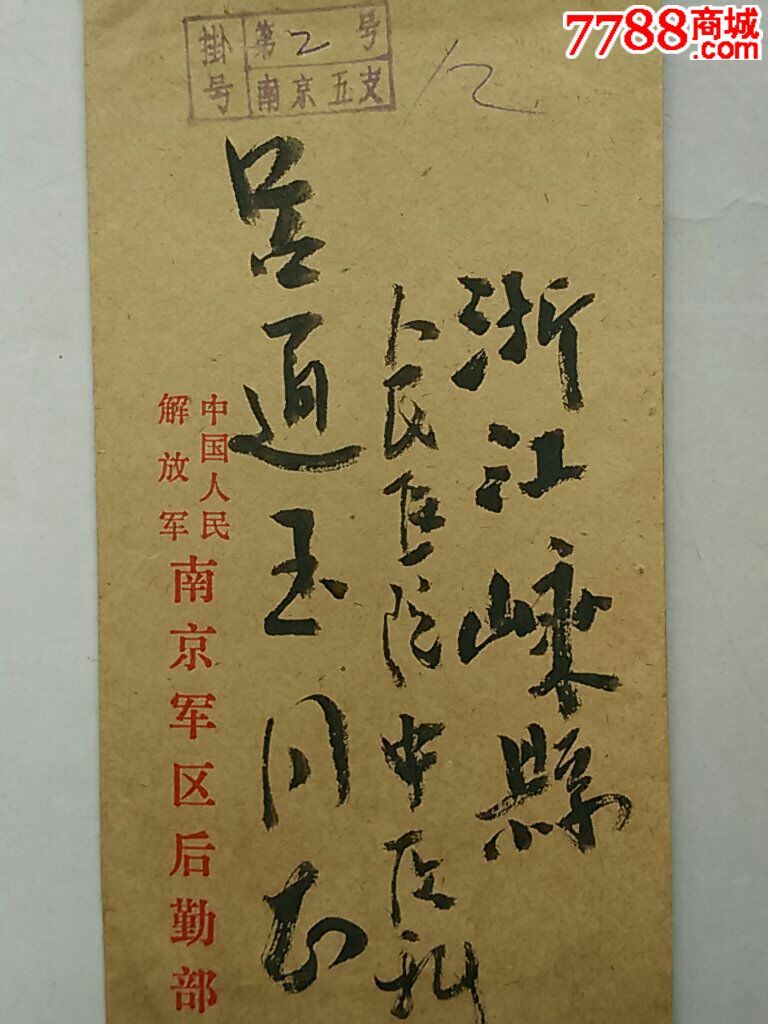 7788商城
.com
掛号
第2号
南京五支
浙江嵊縣
人民医院中医科
吕道玉同志
中国人民
解放军
南京军区后勤部